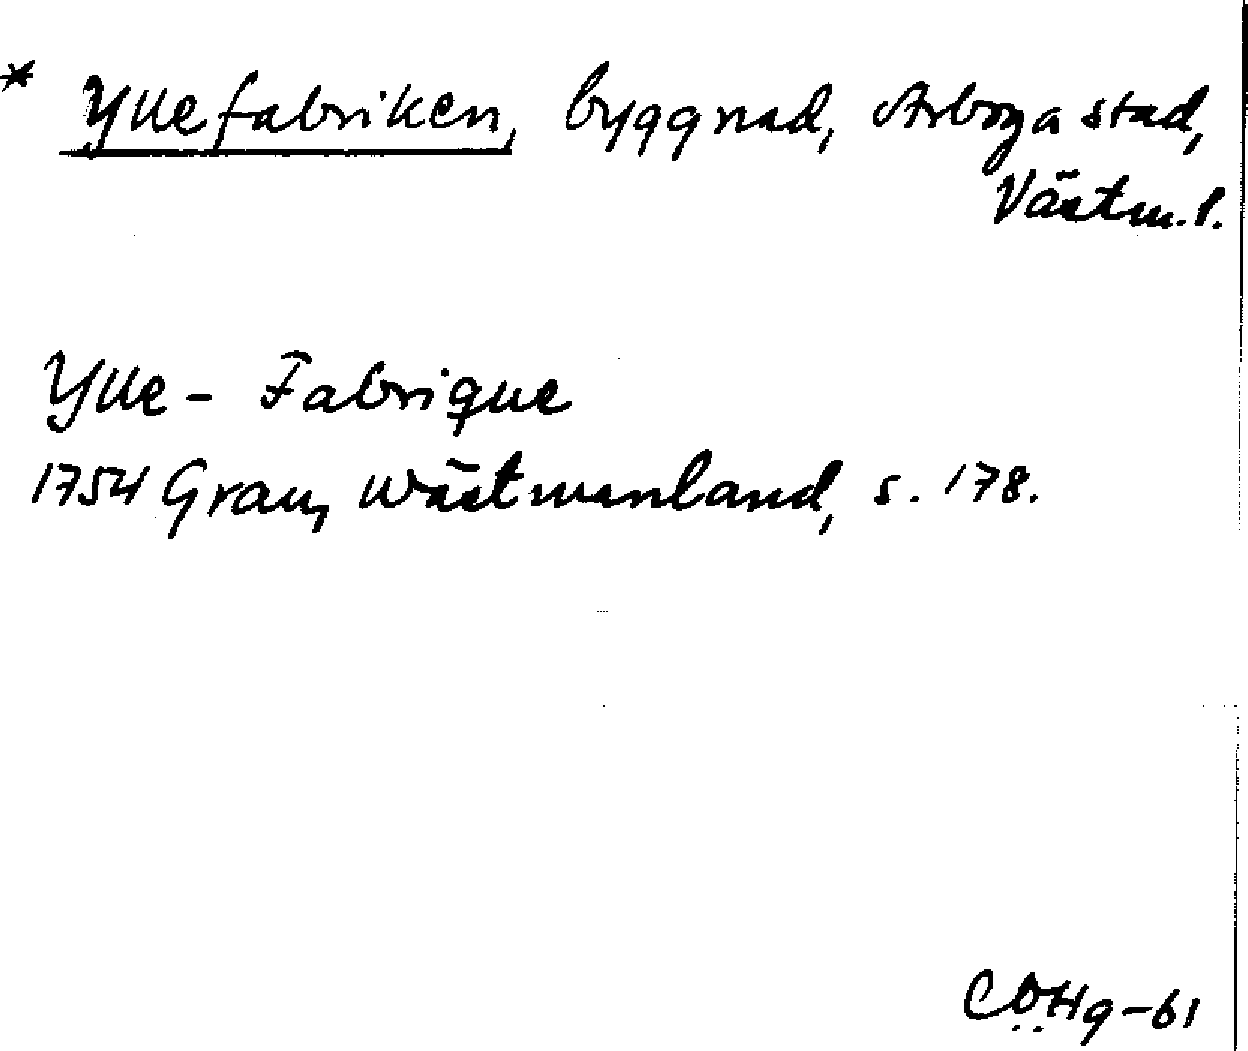 * Yllefabriken, byggnad, Arboga stad,
Västm. l.
Ylle - Fabrique
1754 Grau, Wästmanland, s. 178.